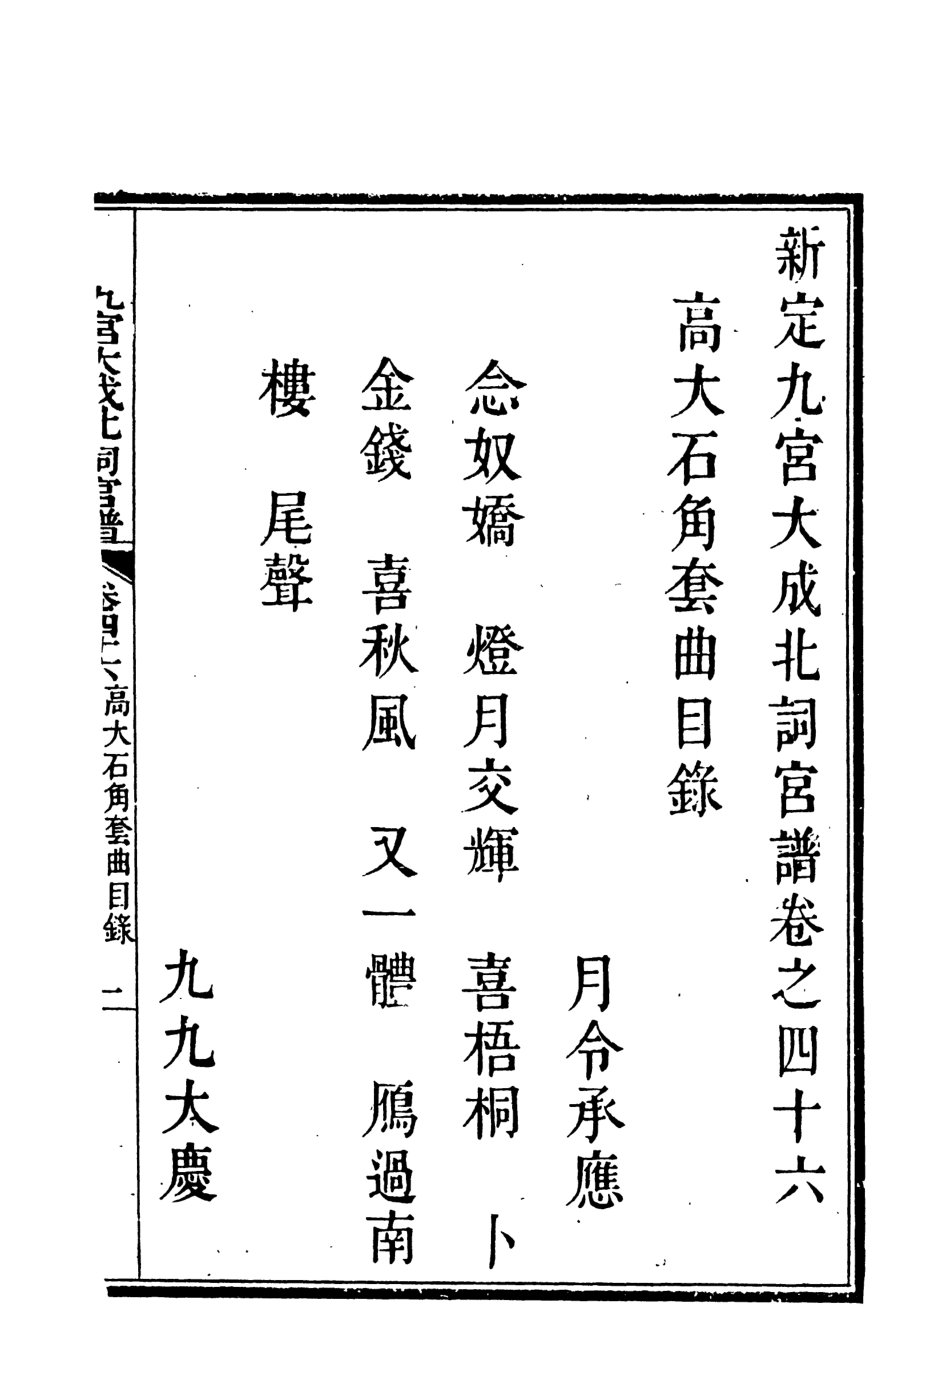 新定九宮大成北詞宮譜卷之四十六
高大石角套曲目錄
月令承應
念奴嬌　燈月交輝　喜梧桐　卜
金錢　喜秋風　又一體　鴈過南
樓　尾聲
九九大慶
九宮大成北詞宮譜　卷四十六　高大石角套曲目錄　二